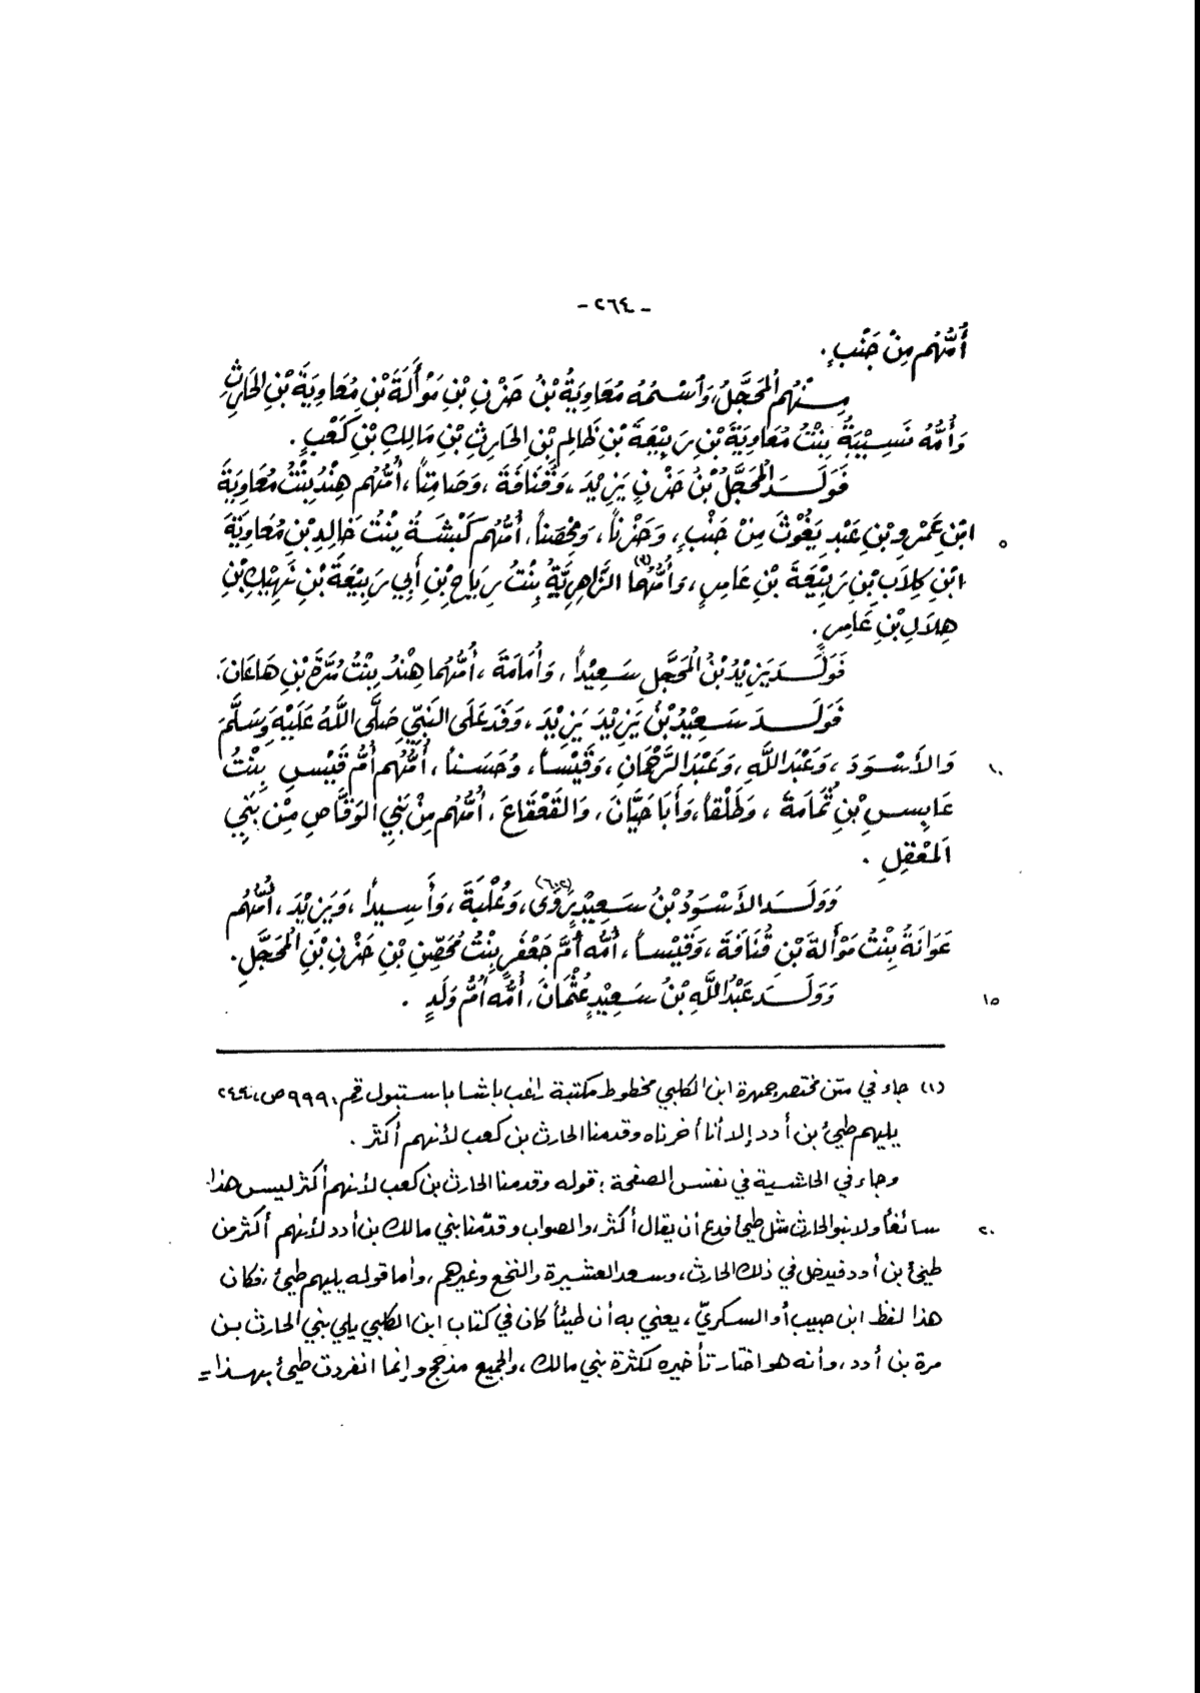 - ٢٦٤ -
أُمُّهُم مِنْ جَنْبٍ.
مِنْهُم الْمُحَجَّلُ، وَٱسْمُهُ مُعَاوِيَةُ بْنُ حَزْنِ بْنِ مَوْأَلَةَ بْنِ مُعَاوِيَةَ بْنِ الحَارِثِ
وَأُمُّهُ نَسِيْبَةُ بِنْتُ مُعَاوِيَةَ بْنِ رَبِيْعَةَ بْنِ ظَالِمِ بْنِ الحَارِثِ بْنِ مَالِكِ بْنِ كَعْبٍ.
فَوَلَدَ الْمُحَجَّلُ بْنُ حَزْنٍ يَزِيْدَ، وَقُنَافَةَ، وَصَامِتاً، أُمُّهُم هِنْدُ بِنْتُ مُعَاوِيَةَ
٥ ابْنِ عَمْرِو بْنِ عَبْدِ يَغُوْثَ مِنْ جَنْبٍ، وَحَزْناً، وَمُحْصَناً، أُمُّهُم كَبْشَةُ بِنْتُ خَالِدِ بْنِ مُعَاوِيَةَ
ابْنِ كِلاَبِ بْنِ رَبِيْعَةَ بْنِ عَامِرٍ، وَأُمُّهُمَا (١) الزَّاهِرِيَّةُ بِنْتُ رِيَاحِ بْنِ أَبِي رَبِيْعَةَ بْنِ نَهِيْكِ بْنِ
هِلاَلِ بْنِ عَامِرٍ.
فَوَلَدَ يَزِيْدُ بْنُ الْمُحَجَّلِ سَعِيْداً، وَأُمَامَةَ، أُمُّهُمَا هِنْدُ بِنْتُ مُرَّةَ بْنِ هَاعَانَ.
فَوَلَدَ سَعِيْدُ بْنُ يَزِيْدَ يَزِيْدَ، وَفَدَ عَلَى النَّبِيِّ صَلَّى اللَّهُ عَلَيْهِ وَسَلَّمَ
١٠ وَالأَسْوَدَ، وَعَبْدَ اللَّهِ، وَعَبْدَ الرَّحْمَانِ، وَقَيْساً، وَحَسَناً، أُمُّهُم أُمُّ قَيْسٍ بِنْتُ
عَابِسِ بْنِ ثُمَامَةَ، وَطَلْقاً، وَأَبَا حَيَّانَ، وَالقَعْقَاعَ، أُمُّهُم مِنْ بَنِي الوَقَّاصِ مِنْ بَنِي
المَعْقِلِ.
وَوَلَدَ الأَسْوَدُ بْنُ سَعِيْدٍ يَرْوَى (٦٠٢)، وَعُلْبَةَ، وَأَسِيداً، وَيَزِيْدَ، أُمُّهُم
عَوَانَةُ بِنْتُ مَوْأَلَةَ بْنِ قُنَافَةَ، وَقَيْساً، أُمُّهُ أُمُّ جَعْفَرٍ بِنْتُ مُحَصِّنِ بْنِ حَزْنِ بْنِ الْمُحَجَّلِ.
١٥ وَوَلَدَ عَبْدُ اللَّهِ بْنُ سَعِيْدٍ عُثْمَانَ، أُمُّهُ أُمُّ وَلَدٍ.
(١) جاء في متن مختصر جمهرة ابن الكلبي مخطوط مكتبة راغب باشا باستنبول رقم ٩٩٩، ص، ٢٤٤
يليهم طيئ بن أدد إلا أنا أخرناه وقدمنا الحارث بن كعب لأنهم أكثر.
وجاء في الحاشية في نفس الصفحة: قوله وقدمنا الحارث بن كعب لأنهم أكثر ليس هذا
٢٠ سائغاً ولا بنو الحارث مثل طيئ فدع أن يقال أكثر، والصواب وقدّمنا بني مالك بن أدد لأنهم أكثر من
طيئ بن أدد فيدخل في ذلك الحارث، وسعد العشيرة والنخع وغيرهم، وأما قوله يليهم طيئ، فكان
هذا لفظ ابن حبيب أو السكريّ، يعني به أن طيئاً كان في كتاب ابن الكلبي يلي بني الحارث بن
مرة بن أدد، وأنه هو اختار تأخيره لكثرة بني مالك، والجميع مذحج وإنما انفردت طيئ بهذا =